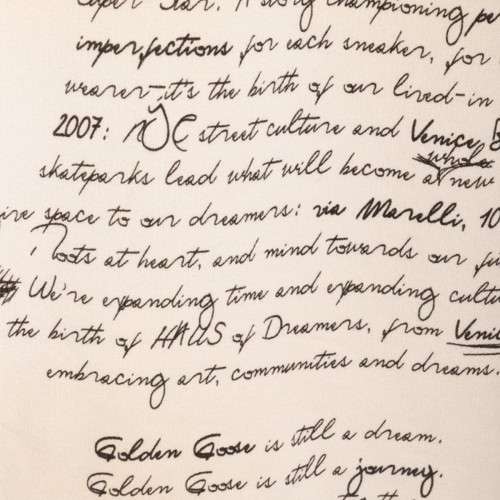 Super Star. A story championing pe
imperfections for each sneaker, for
wearer-it's the birth of our lived-in
2007: NYC street culture and Venice B
whole
skateparks lead what will become a new
ive space to our dreamers: via Marelli, 10
Roots at heart, and mind towards our fu
We're expanding time and expanding cultu
the birth of HAUS of Dreamers, from Venic
embracing art, communities and dreams.
Golden Goose is still a dream.
Golden Goose is still a journey.